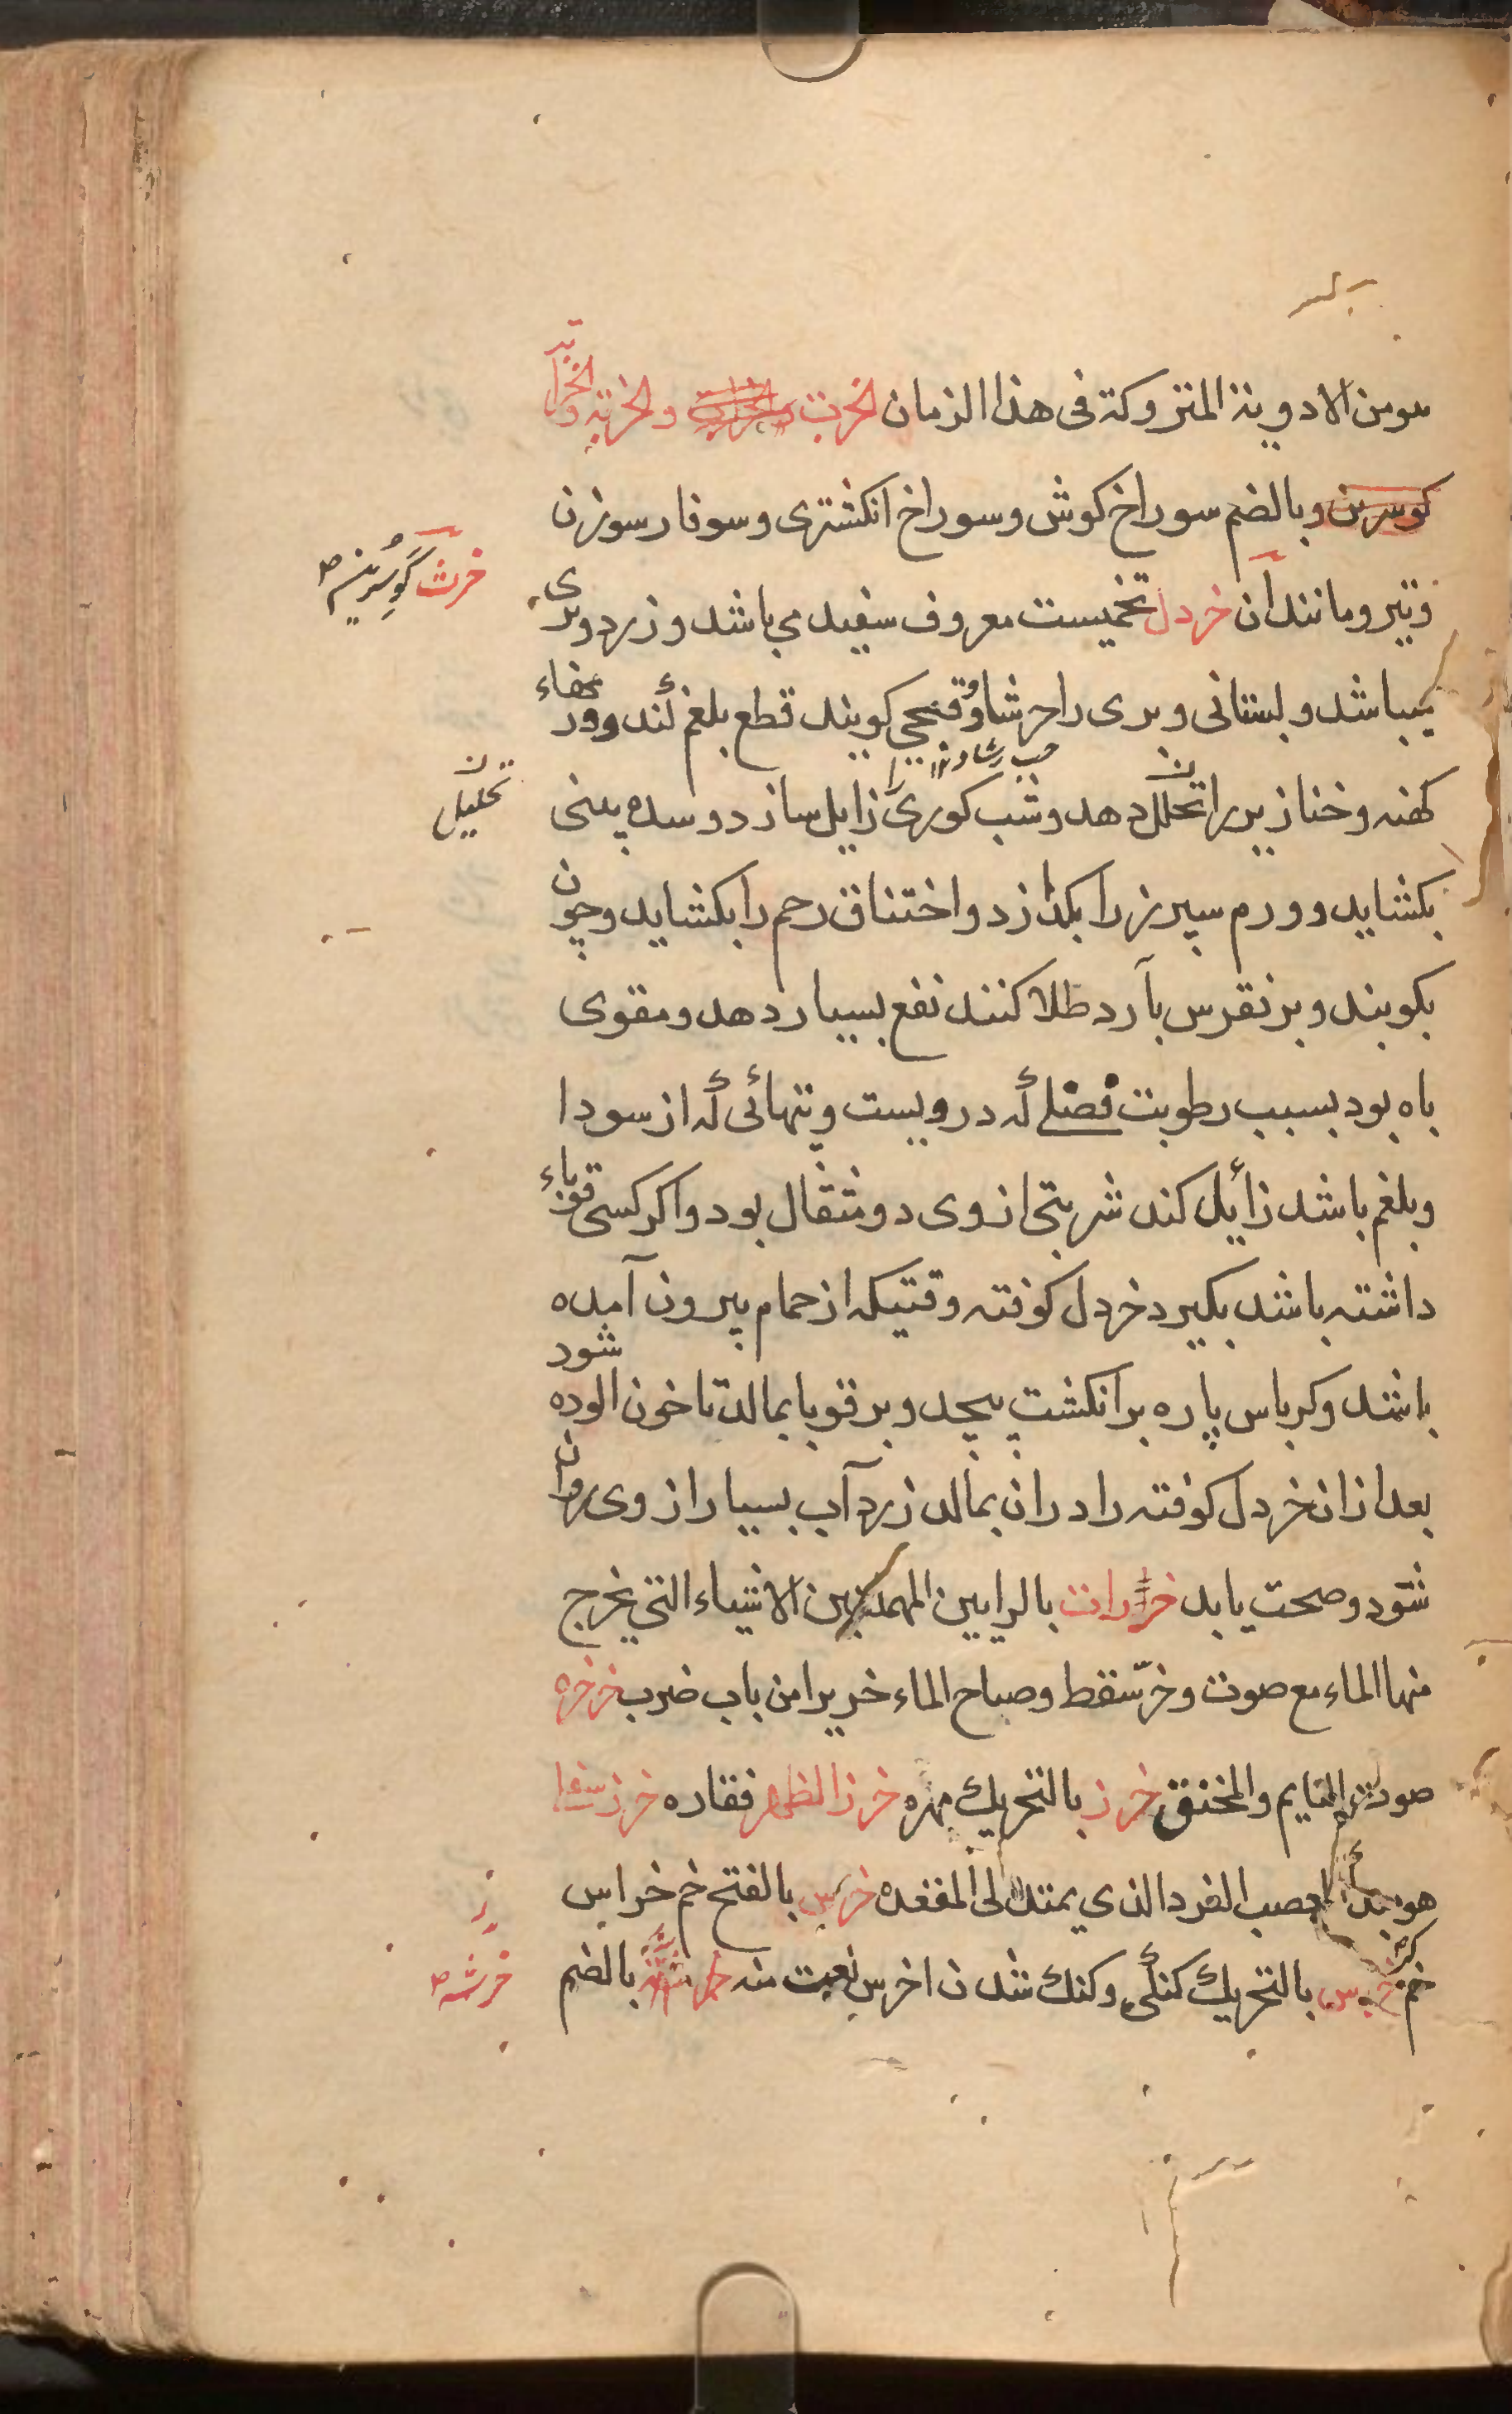 هو من الادوية المتروكة فى هذا الزمان الخرت والخربة والخرابة
كوسرين وبالضم سوراخ كوش وسوراخ انكشترى وسوفار سوزن
خرث كوسرين صح
وتير ومانند آن خردل تخميست معروف سفيد مى باشد وزرد وبرى
ميباشد وبستانى وبرى را حرشا وقنجى كويند قطع بلغم كند وورمهاء
حب رشاد
كهنه وخنازير را تحلل دهد وشب كورى را زايل سازد وسده بينى
تحليل
بكشايد وورم سپرز را بكدازد واختناق رحم را بكشايد وچون
بكوبند وبر نقرس بآرد طلا كنند نفع بسيار دهد ومقوى
باه بود بسبب رطوبت فضلى كه درويست وتبهائى كه از سودا
وبلغم باشد زايل كند شربتى از وى دو مثقال بود واكر كسى قوباء
داشته باشد بكيرد خردل كوفته وقتيكه از حمام بيرون آمده
باشد وكرباس پاره بر انكشت پيچد وبر قوبا بمالد تا خون الوده شود
بعد ازان خردل كوفته را دران بمالد زرد آب بسيار از وى روان
شود وصحت يابد خرارات بالرايين المهملتين الاشياء التى يخرج
منها الماء مع صوت وخرّ سقط وصاح الماء خريرا من باب ضرب خرخره
صوت النايم والمخنق خرز بالتحريك مهره خرز الظهر فقاره خرز
هو العصب الفرد الذي يمتد الى المقعده خرس بالفتح خم خراس
خم كر خرس بالتحريك كنكى وكنك شدن اخرس نعت منه خرشه بالضم
خرشه صح